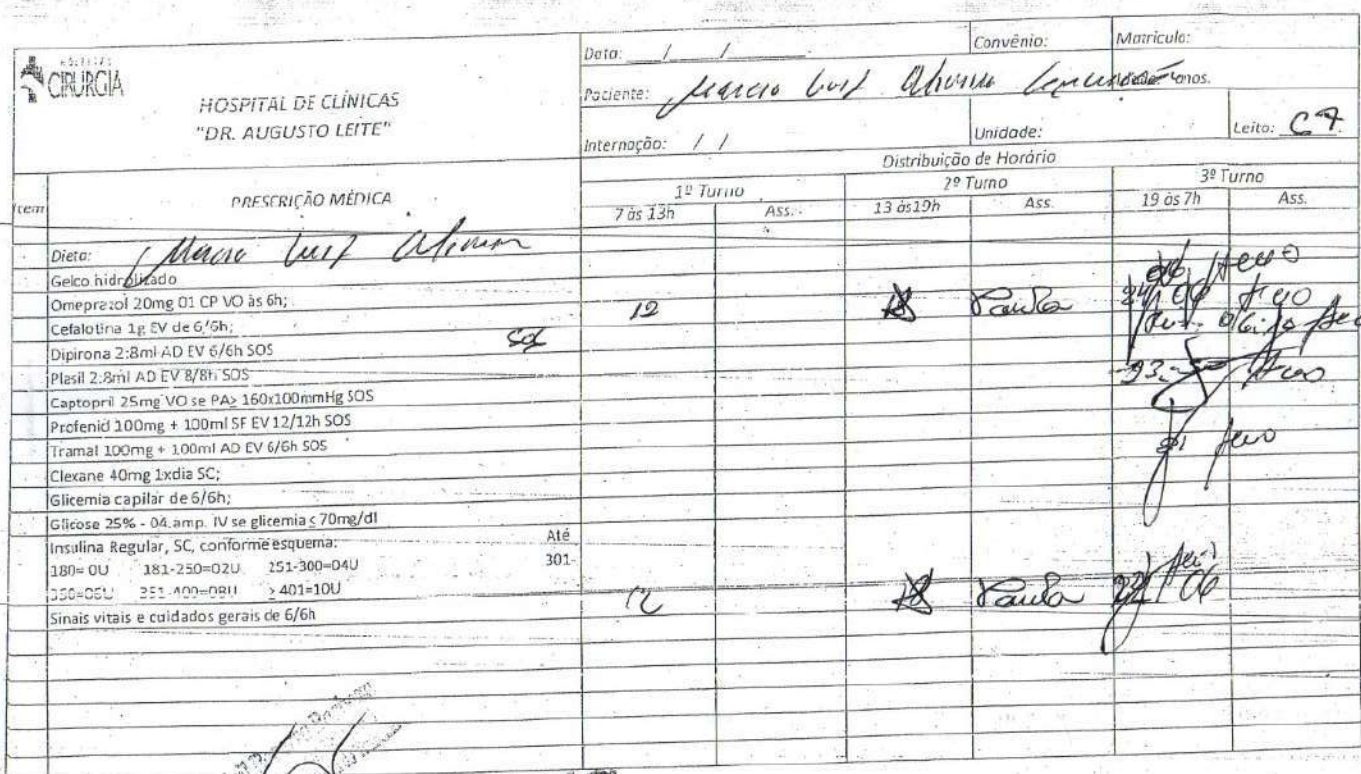 HOSPITAL
CIRURGIA
HOSPITAL DE CLÍNICAS
"DR. AUGUSTO LEITE"
Data: __/__/__ Convênio: Matrícula:
Paciente: Marcio Luiz anos.
Internação: / / Unidade: Leito: C7
Distribuição de Horário
Item PRESCRIÇÃO MÉDICA 1º Turno 2º Turno 3º Turno
7 às 13h Ass. 13 às19h Ass. 19 às 7h Ass.
Dieta: Marcio Luiz
Gelco hidrolizado 06
Omeprazol 20mg 01 CP VO às 6h;
Cefalotina 1g EV de 6/6h; 12 18 Paula 24 06
Dipirona 2:8ml AD EV 6/6h SOS
Plasil 2:8ml AD EV 8/8h SOS
Captopril 25mg VO se PA≥ 160x100mmHg SOS
Profenid 100mg + 100ml SF EV 12/12h SOS
Tramal 100mg + 100ml AD EV 6/6h SOS
Clexane 40mg 1xdia SC;
Glicemia capilar de 6/6h;
Glicose 25% - 04 amp. IV se glicemia ≤ 70mg/dl
Insulina Regular, SC, conforme esquema: Até
180= 0U 181-250=02U 251-300=04U 301-
350=06U 351-400=08U ≥ 401=10U
Sinais vitais e cuidados gerais de 6/6h 12 18 Paula 22 06